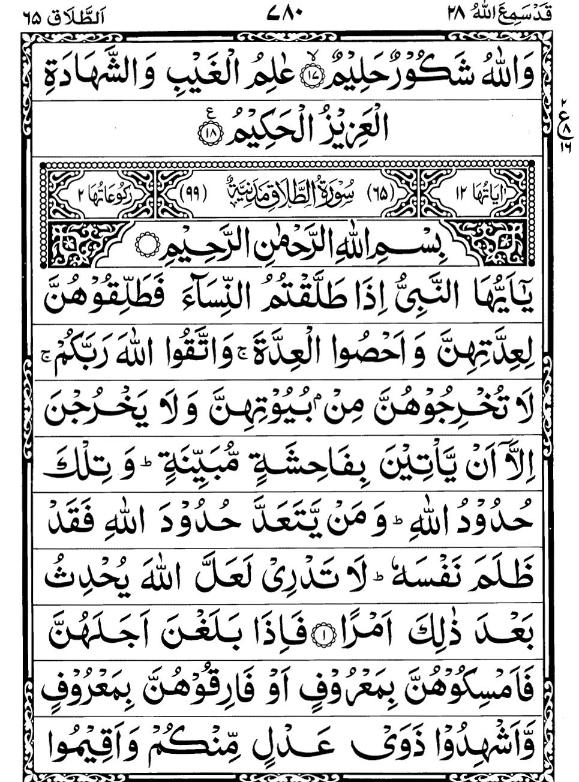 قَدْسَمِعَ اللهُ ٢٨ ٧٨٠ اَلطَّلَاق ٦٥
وَاللّٰهُ شَكُوْرٌ حَلِيْمٌ ۙ﴿١٧﴾ عٰلِمُ الْغَيْبِ وَالشَّهَادَةِ
الْعَزِيْزُ الْحَكِيْمُ ﴿١٨﴾ ع
٢
ع
٨
١٦
اٰيَاتُهَا ١٢ (٦٥) سُوْرَةُ الطَّلَاقِ مَدَنِيَّةٌ (٩٩) رُكُوْعَاتُهَا ٢
بِسْمِ اللّٰهِ الرَّحْمٰنِ الرَّحِيْمِ
يٰۤاَيُّهَا النَّبِىُّ اِذَا طَلَّقْتُمُ النِّسَآءَ فَطَلِّقُوْهُنَّ
لِعِدَّتِهِنَّ وَ اَحْصُوا الْعِدَّةَ ۚ وَاتَّقُوا اللّٰهَ رَبَّكُمْ ۚ
لَا تُخْرِجُوْهُنَّ مِنْۢ بُيُوْتِهِنَّ وَ لَا يَخْرُجْنَ
اِلَّاۤ اَنْ يَّاْتِيْنَ بِفَاحِشَةٍ مُّبَيِّنَةٍ ؕ وَ تِلْكَ
حُدُوْدُ اللّٰهِ ؕ وَ مَنْ يَّتَعَدَّ حُدُوْدَ اللّٰهِ فَقَدْ
ظَلَمَ نَفْسَهٗ ؕ لَا تَدْرِىْ لَعَلَّ اللّٰهَ يُحْدِثُ
بَعْدَ ذٰلِكَ اَمْرًا ﴿١﴾ فَاِذَا بَلَغْنَ اَجَلَهُنَّ
فَاَمْسِكُوْهُنَّ بِمَعْرُوْفٍ اَوْ فَارِقُوْهُنَّ بِمَعْرُوْفٍ
وَّاَشْهِدُوْا ذَوَىْ عَدْلٍ مِّنْكُمْ وَاَقِيْمُوا